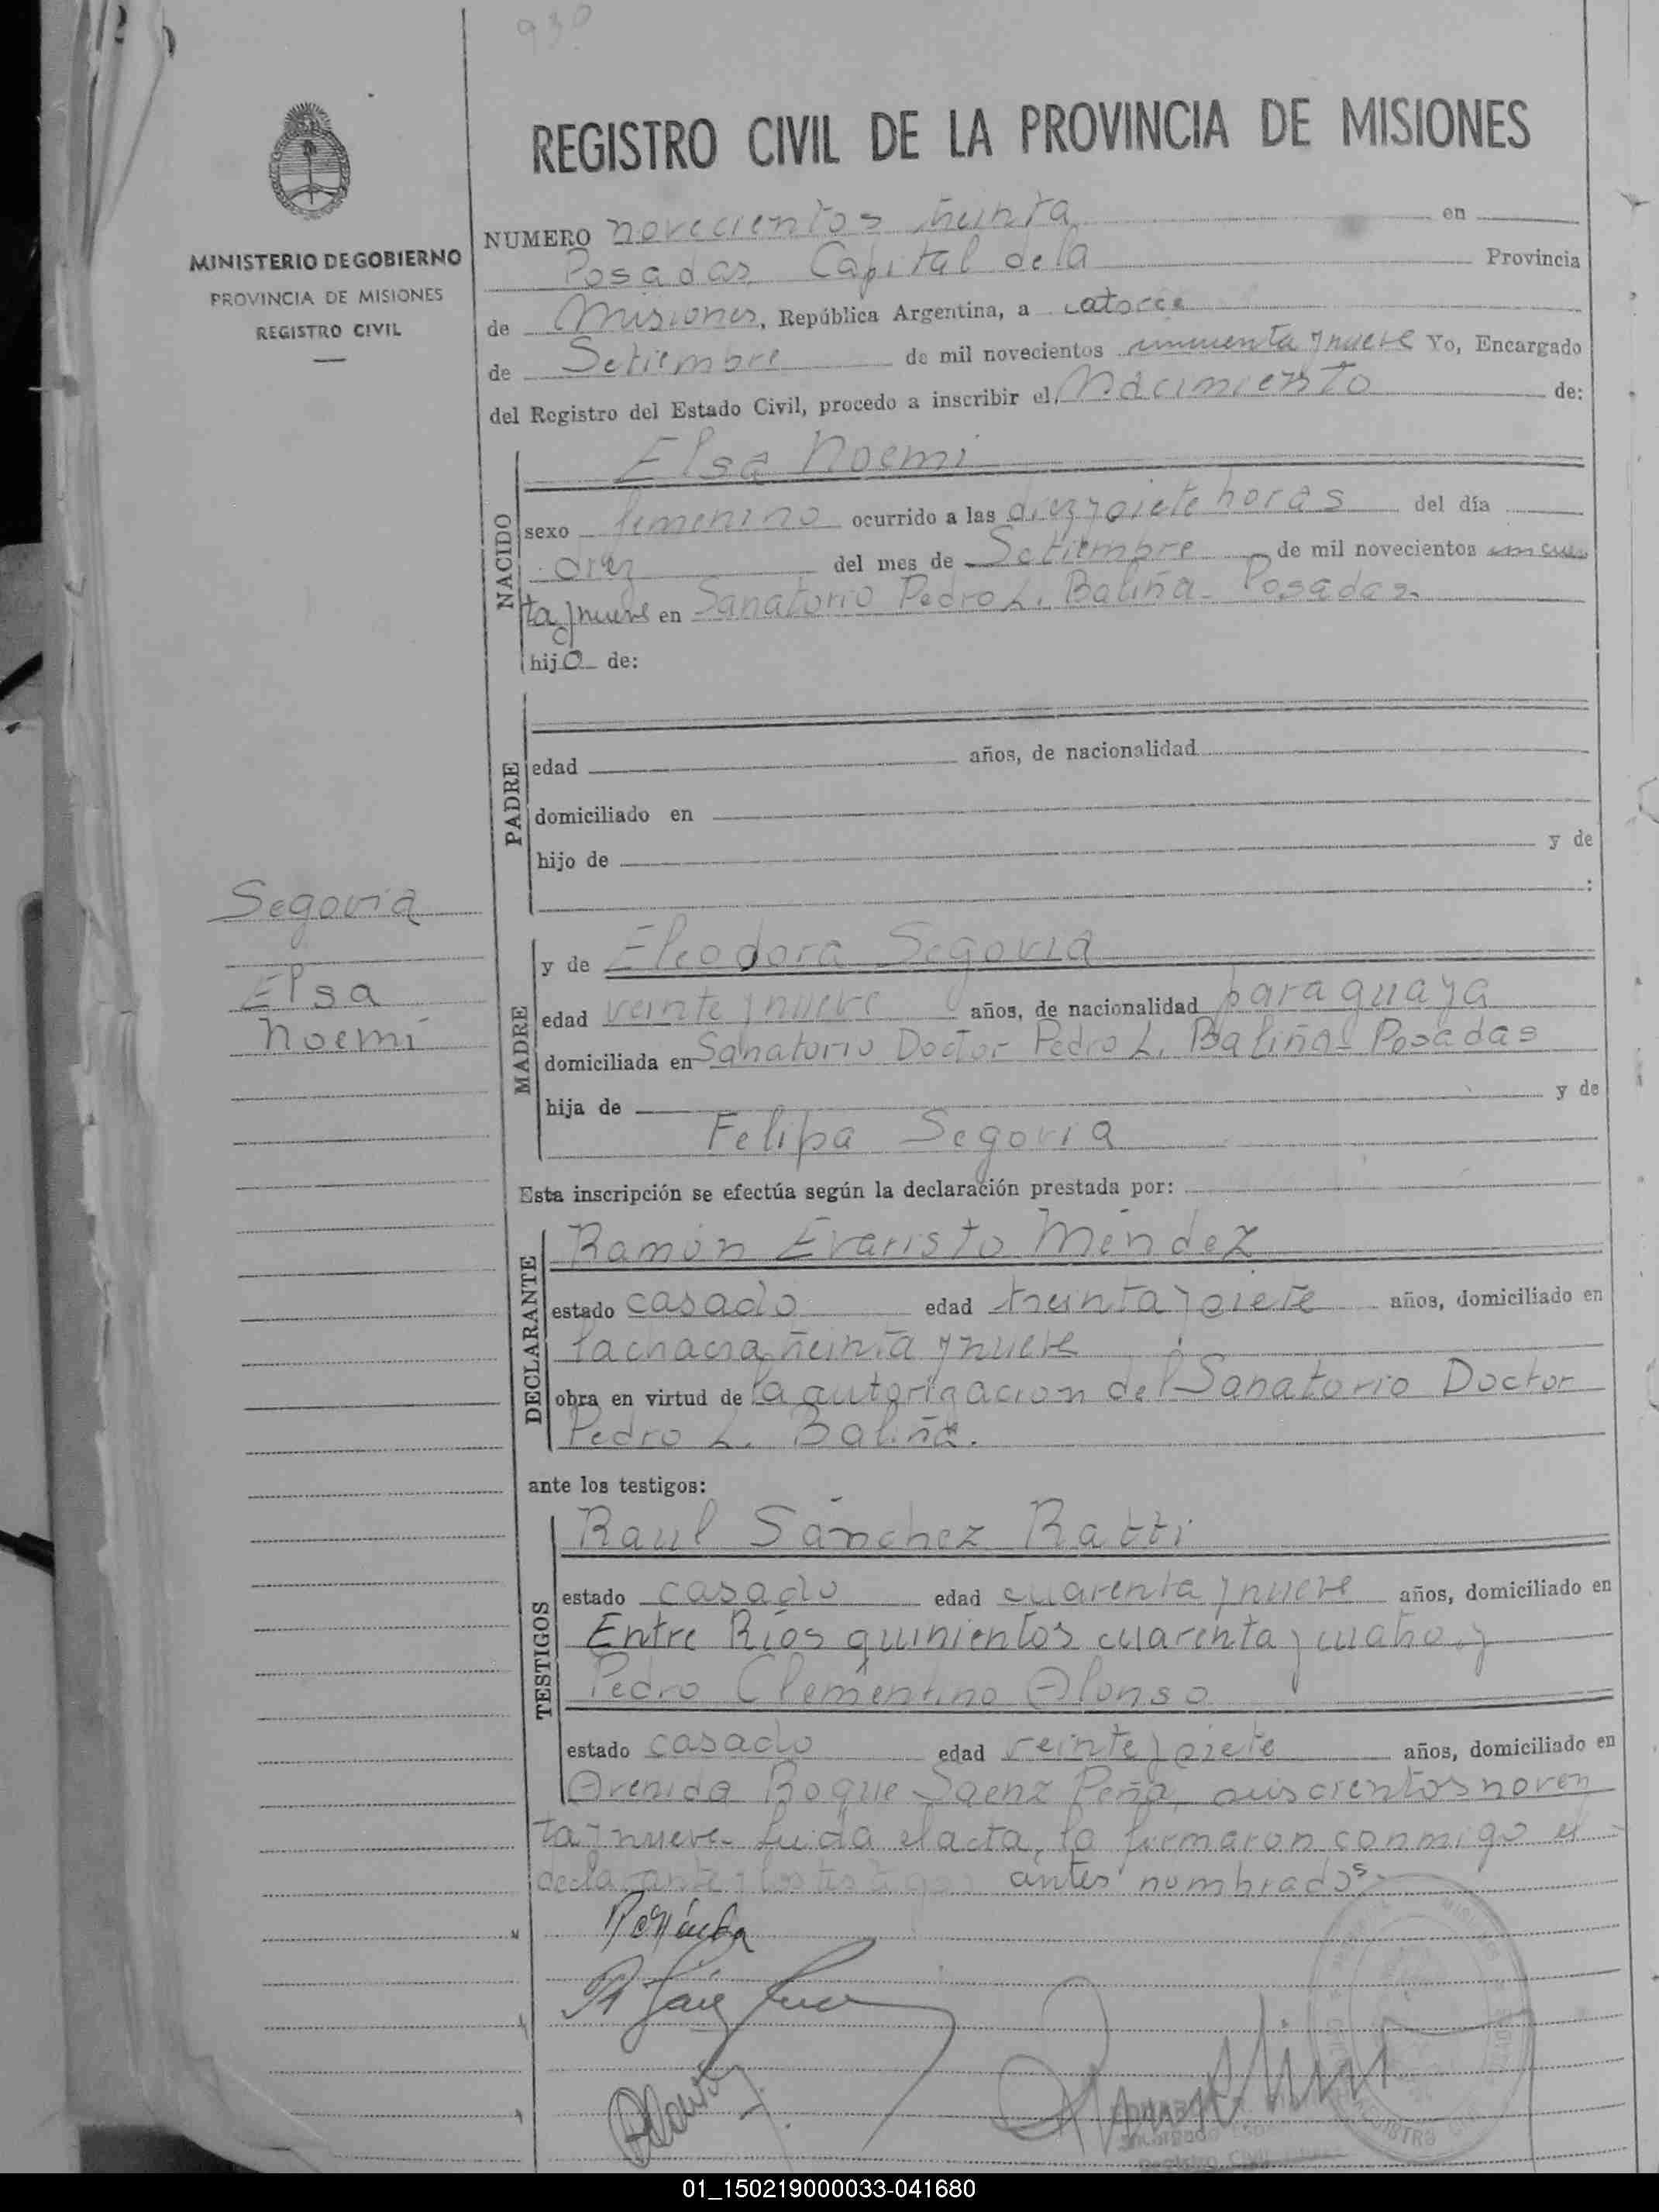 930
REGISTRO CIVIL DE LA PROVINCIA DE MISIONES
MINISTERIO DE GOBIERNO
PROVINCIA DE MISIONES
REGISTRO CIVIL
NUMERO novecientos treinta en
Posadas Capital de la Provincia
de Misiones, República Argentina, a catorce
de Setiembre de mil novecientos cincuenta y nueve Yo, Encargado
del Registro del Estado Civil, procedo a inscribir el Nacimiento de:
NACIDO
Elsa Noemi
sexo femenino ocurrido a las diez y siete horas del día
diez del mes de Setiembre de mil novecientos cincuen
ta y nueve en Sanatorio Pedro L. Baliña - Posadas.
hijo de:
PADRE
edad años, de nacionalidad
domiciliado en
hijo de y de
:
Segovia
Elsa
Noemí
MADRE
y de Eleodora Segovia
edad veinte y nueve años, de nacionalidad paraguaya
domiciliada en Sanatorio Doctor Pedro L. Baliña - Posadas
hija de y de
Felipa Segovia
Esta inscripción se efectúa según la declaración prestada por:
DECLARANTE
Ramón Evaristo Méndez
estado casado edad treinta y siete años, domiciliado en
la chacra treinta y nueve
obra en virtud de la autorización del Sanatorio Doctor
Pedro L. Baliña.
ante los testigos:
TESTIGOS
Raul Sánchez Ratti
estado casado edad cuarenta y nueve años, domiciliado en
Entre Ríos quinientos cuarenta y cuatro y
Pedro Clementino Alonso
estado casado edad veinte y siete años, domiciliado en
Avenida Roque Saenz Peña seiscientos noven
ta y nueve. Leida el acta, la firmaron conmigo el
declarante y los testigos antes nombrados.
01_150219000033-041680